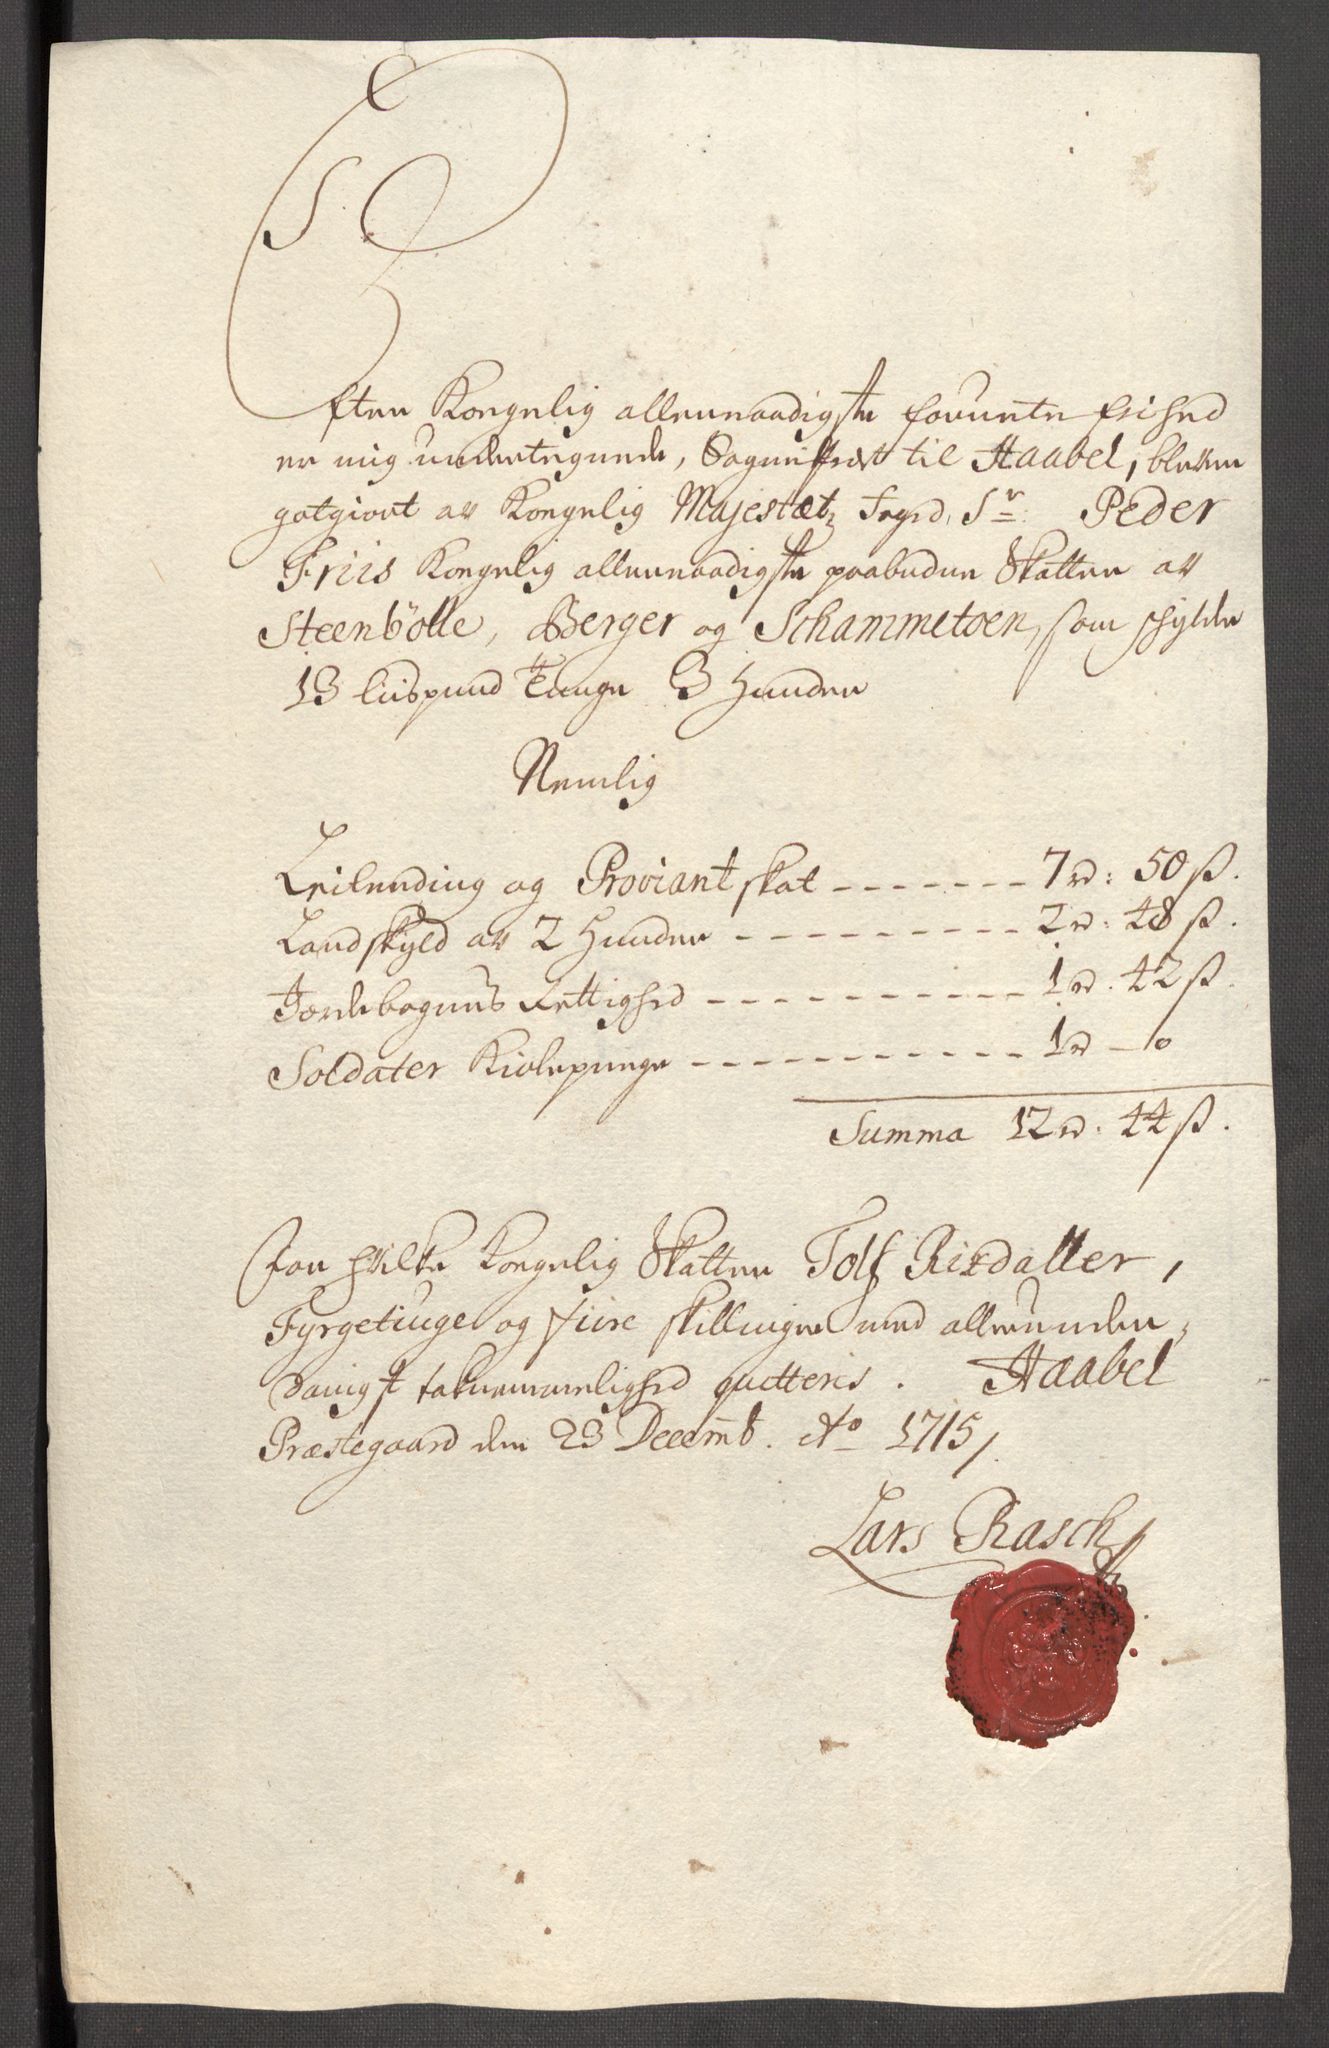 Efter Kongelig allernaadigste forunte frihed
er mig underteignede, Sogneprest til Haabel, bleven
gotgiort av Kongelig Majestætz Fogd, Sr. Peder
Friis Kongelig allernaadigste paabudne Skatter av
Steenbölle, Berger og Schammetoen, som skylder
13 lispund Tunge 3 Huuder
Nemlig
Leilending og Proviant skat - - - - - - - 7 rd: 50 ß.
Landskyld av 2 Huuder - - - - - - - - - - 2 rd: 48 ß.
Jordebogens Rettighed - - - - - - - - - - - 1 rd. 42 ß.
Soldater Kiolepenge - - - - - - - - - - - - 1 rd - 0
Summa 12 rd: 44 ß.
For hvilke Kongelig Skatter Tolf Rixdaller,
Fyrgetiuge og fiire skillinger med allerunder,
danigst taknemmelighed qvitteris. Haabel
Præstegaard den 23 Decemb. Ao 1715/.
Lars Rasch